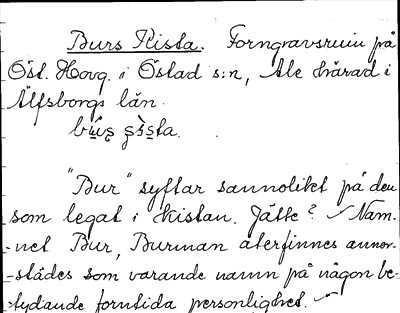 Burs Kista. Forngravsruin på
Öst. Horg. i Östad s:n, Ale härad i
Älfsborgs län.
"Bur" syftar sannolikt på den
som legat i kistan. Jätte? Nam-
-net Bur, Burman återfinnes annor-
-städes som varande namn på någon be-
-tydande forntida personlighet.